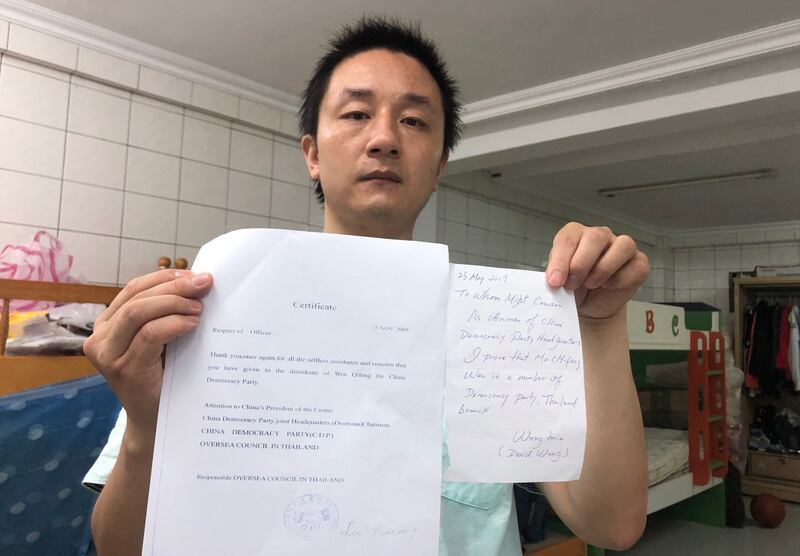 Certificate
Respect of Officer :
15 NOV. 2009
Thank you,once again,for all the selfless assistance and concern that
you have given to the dissidents of Wen Qifeng the China
Democracy Party.
Attention to China's President of the Center
China Democracy Party joint Headquarters (Overseas)Chairman
CHINA DEMOCRACY PARTY(C.D.P.)
OVERSEA COUNCIL IN THAILAND
Responsible OVERSEA COUNCIL IN THAILAND
23 May 2019
To Whom Might Concern
As chairman of China
Democracy Party Headquarters
I prove that Mr. Chifeng
Wen is a number of
Democracy party, Thailand
branch
Wang min
(David Wang)
B C